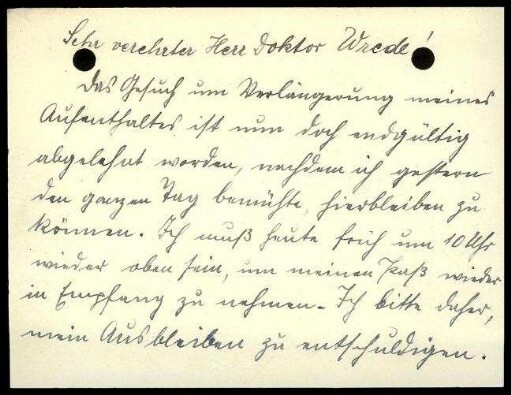 Sehr verehrter Herr Doktor Wrede!
Das Gesuch um Verlängerung meines
Aufenthaltes ist nun doch endgültig
abgelehnt worden, nachdem ich gestern
den ganzen Tag bemühte, hierbleiben zu
können. Ich muß heute früh um 10 Uhr
wieder oben sein, um meinen Paß wieder
in Empfang zu nehmen. Ich bitte daher,
mein Ausbleiben zu entschuldigen.